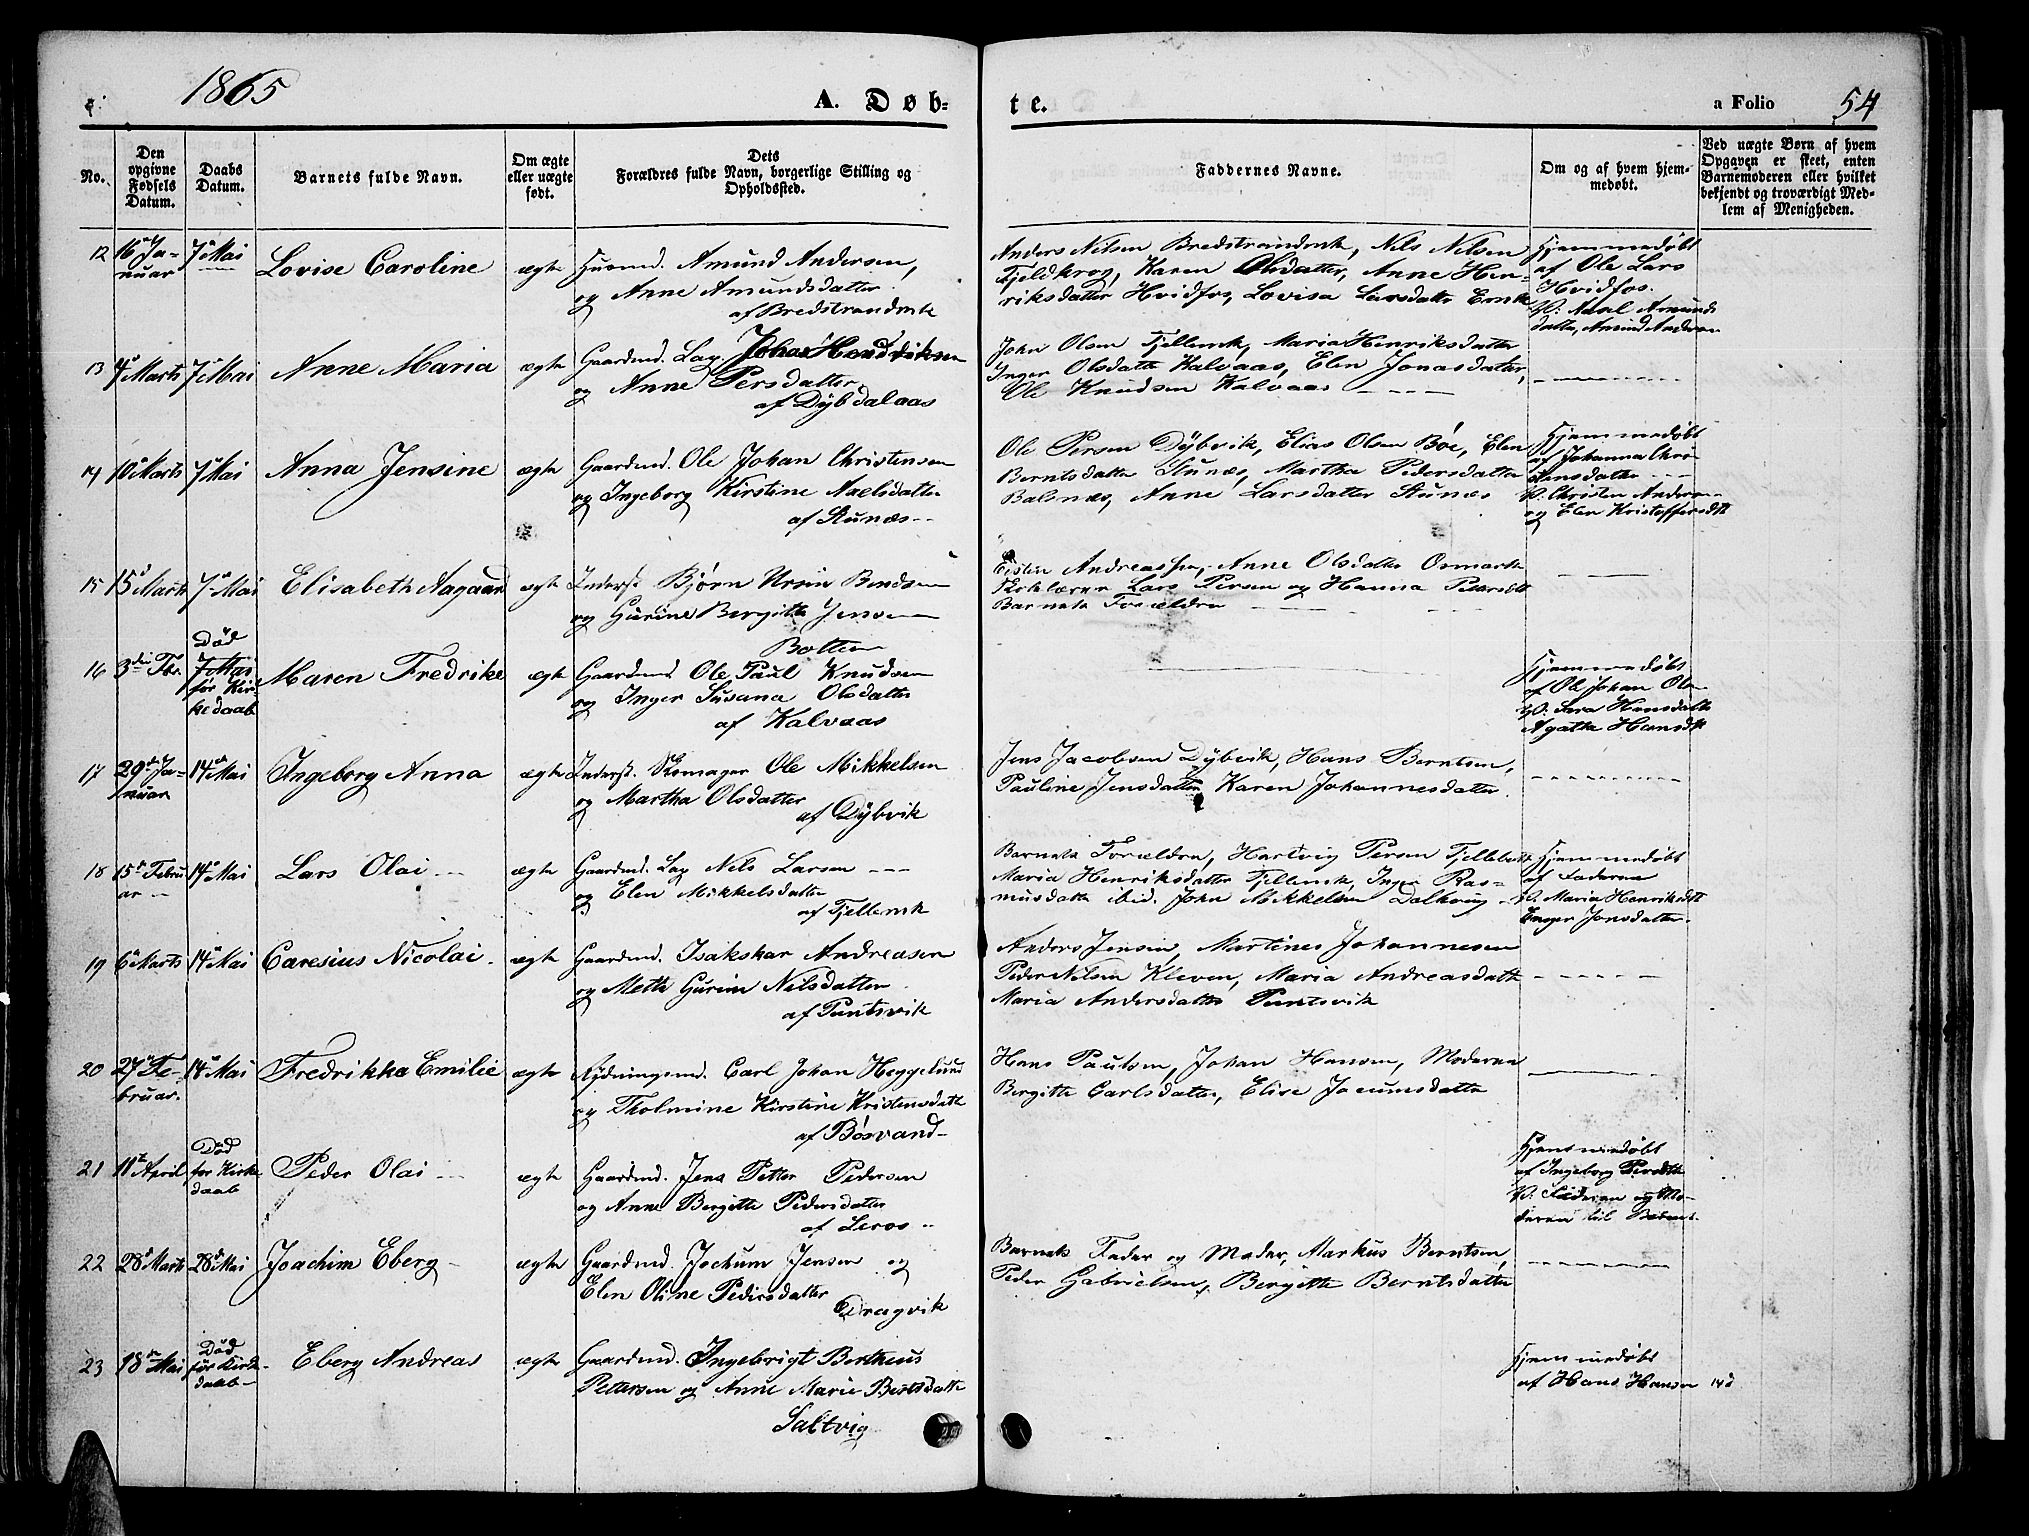 1865
A. Døb-
te.
a Folio 54
No.
Den opgivne Fødsels Datum.
Daabs Datum.
Barnets fulde Navn.
Om ægte eller uægte født.
Dets Forældres fulde Navn, borgerlige Stilling og Opholdssted.
Faddernes Navne.
Om og af hvem hjemmedøbt.
Ved uægte Børn af hvem Opgaven er skeet, enten Barnemoderen eller hvilket bekjendt og troværdigt Medlem af Menigheden.
12 16 Januar 7 Mai Lovise Caroline ægte Huusmd. Amund Andersen,
og Anne Amundsdatter
af Bredstrand
Anders Nilsen Bredstrand, Nils Nilsen
Fjeldkrog, Karen Olsdatter, Anne Hen-
riksdatter Hvidfos, Lovisa Larsdatter
Hjemmedøbt
af Ole Lars
Hvidfos.
13 4 Marts 7 Mai Anne Maria ægte Gaardmd. Lap. Johan Hendriksen
og Anne Persdatter
af Dybdalaas
John Olsen Fjellemk, Maria Henriksdatter
Inger Olsdatter Kalvaas, Elen Jonasdatter,
Ole Knudsen Kalvaas
14 10 Marts 7 Mai Anna Jensine ægte Gaardmd. Ole Johan Christensen
og Ingeborg Kirstine Axelsdatter
af Stunæs
Ole Persen Dybvik, Elias Olsen Bøe, Elen
Berntsdatter Stunæs, Martha Pedersdatter
Balsnæs, Anne Larsdatter Stunæs
Hjemmedøbt
af Johanna Chri-
stensdatter
V. Christen Andersen
og Elen Kristoffersdtt
15 15 Marts 7 Mai Elisabeth Aagaard ægte Inderst Bjørn Ursin Bendsen
og Gurine Bergitte Jensen
Botten
Andreassen, Anne Olsdatter Osmark
Kirkelærer Lars Persen og Hanna Petersdtt
Barnets Forældre
16 3 Febr. Død
7 Mai
før Kir-
kedaab Maren Fredrike ægte Gaardmd. Ole Paul Knudsen
og Inger Susana Olsdatter
af Kalvaas
Hjemmedøbt
af Ole Johan Olsen
V. Sara Hansdatter
Agatha Hansdtt
17 29 Januar 14 Mai Ingeborg Anna ægte Inderst. Skomager Ole Mikkelsen
og Martha Olsdatter
af Dybvik
Jens Jacobsen Dybvik, Hans Berntsen,
Pauline Jensdatter, Karen Johannesdatter.
18 15 Februar 14 Mai Lars Olai ægte Gaardmd. Lap Nils Larsen
og Elen Mikkelsdatter
af Fjellemk
Barnets Forældre, Hartvig Persen
Maria Henriksdatter Fjellemk, Inger Ras-
musdatter ibid. John Mikkelsen Dalhoug
Hjemmedøbt
af Faderen
V. Maria Henriksdtt
Inger Jonsdatter.
19 6 Marts 14 Mai Caresius Nicolai ægte Gaardmd. Isakskar Andreasen
og Mette Gurine Nilsdatter
af Puntsvik
Anders Jensen, Martines Johannesen
Peder Nilsen Kleven, Maria Andreasdatter
Maria Andersdatter Puntsvik
20 27 Februar. 14 Mai Fredrikke Emilie ægte Rydningsmd. Carl Johan Heggelund
og Tholmine Kirstine Kristensdatter
af Bøsvand
Hans Paulsen, Johan Hansen, Moderen
Bergitte Carlsdatter, Elise Jocumsdatter
21 11 April Død
før Kirke
daab Peder Olai ægte Gaardmd. Jens Petter Pedersen
og Anne Bergitte Pedersdatter
af Leros
Hjemmedøbt
af Ingeborg Persdtt
V. Faderen og Mo-
deren til Barnet.
22 28 Marts 28 Mai Joachim Eberg ægte Gaardmd. Jochum Jensen og
Elen Oline Pedersdatter
Dragvik
Barnets Fader og Moder, Markus Berntsen,
Peder Gabrielsen, Bergitte Berntsdatter
23 18 Mai Død
før Kirke
daab Eberg Andreas ægte Gaardmd. Ingebrigt Bertheus
Pettersen og Anne Marie Berntsdatter
Saltvig
Hjemmedøbt
af Hans Hansen